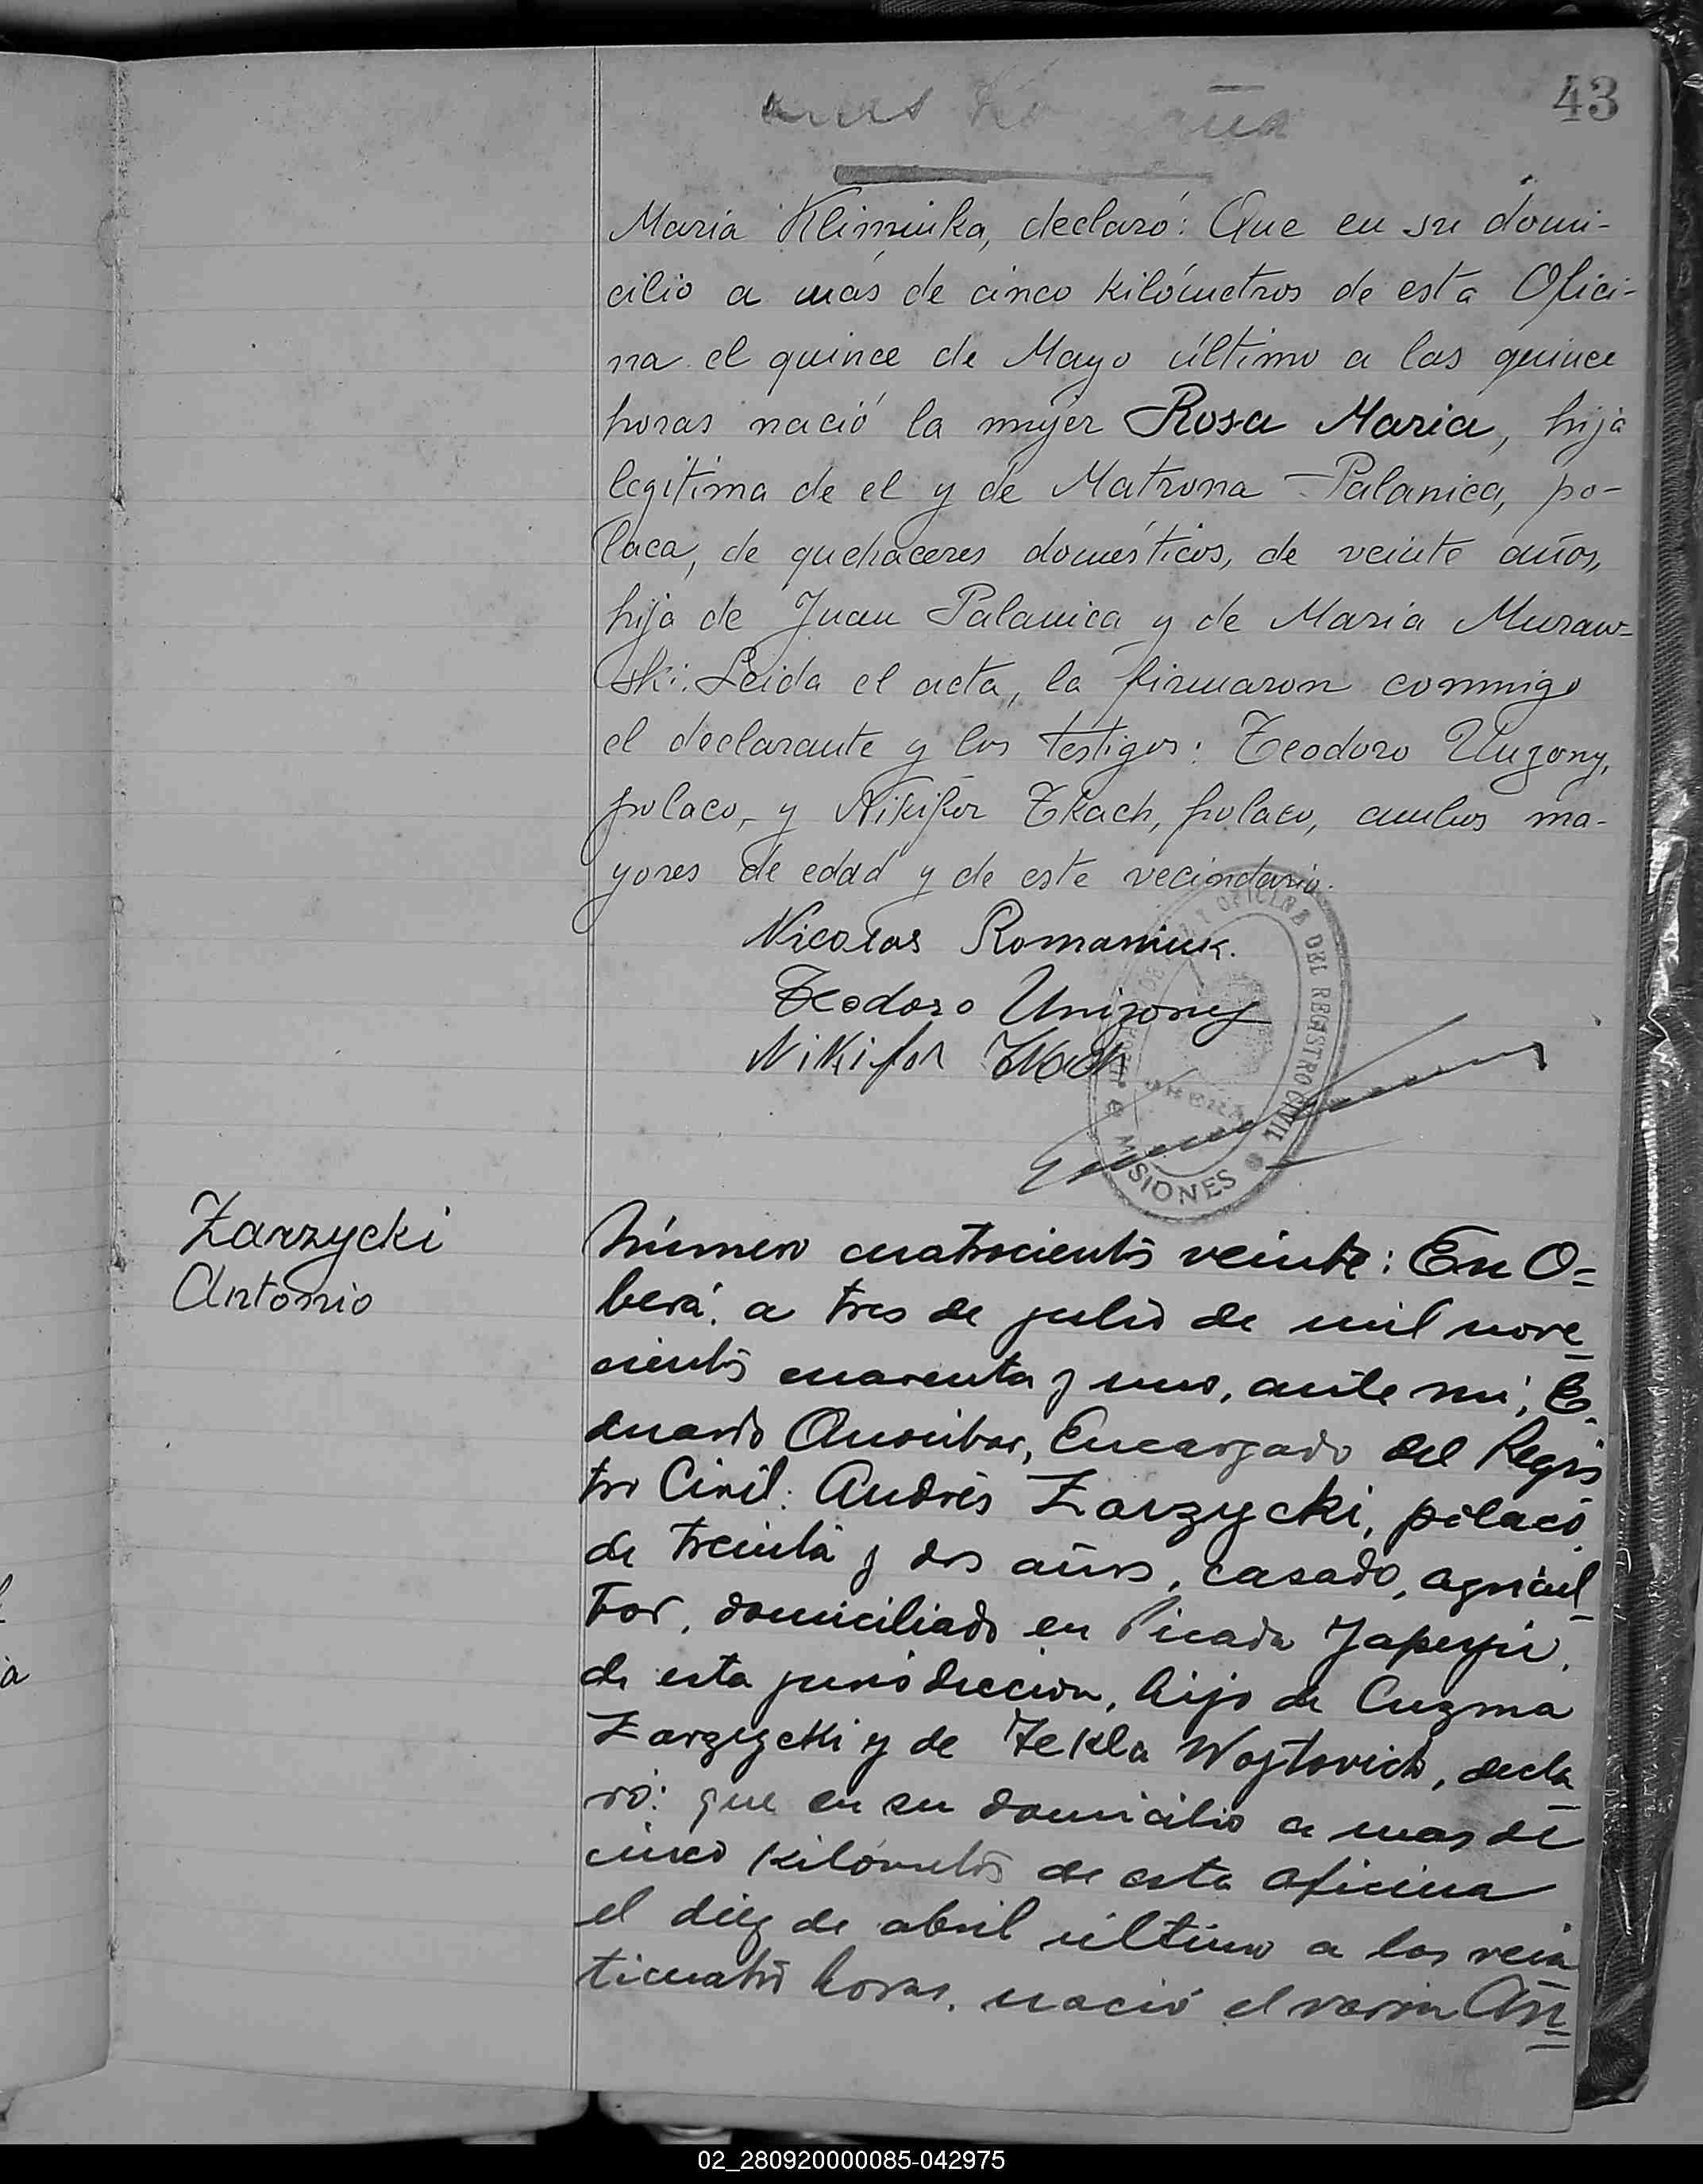 43
Maria Klimiuka, declaró: Que en su domi-
cilio a más de cinco kilómetros de esta Ofici-
na el quince de Mayo último a las quince
horas nació la mujer Rosa Maria, hija
legítima de el y de Matrona Palanica, po-
laca, de quehaceres domésticos, de veinte años,
hija de Juan Palanica y de Maria Muraw-
ski. Leida el acta, la firmaron conmigo
el declarante y los testigos: Teodoro Unizony,
polaco, y Nikifor Tkach, polaco, ambos ma-
yores de edad y de este vecindario.
Nicolas Romaniuk.
Teodoro Unizony
Nikifor Tkach
OFICINA DEL REGISTRO CIVIL
OBERÁ
MISIONES
Zarzycki
Antonio
Número cuatrocientos veinte: En O=
berá, a tres de julio de mil nove
cientos cuarenta y uno, ante mí, E.
duardo Encargado del Regis
tro Civil: Andrés Zarzycki, polaco
de treinta y dos años, casado, agricul
tor, domiciliado en Picada Yapeyú,
de esta jurisdiccion, hijo de Cuzma
Zarzycki y de Tekla Wojtovich, decla
ró: que en su domicilio a mas de
cinco kilómetros de esta oficina
el diez de abril último a las vein
ticuatro horas, nació el varon An
02_280920000085-042975